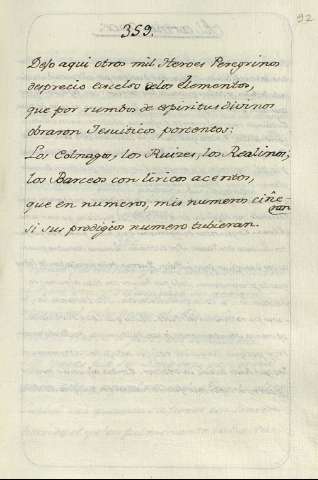 92
359.
Dejo aqui otros mil Heroes Peregrinos
desprecio excelso delos Elementos,
que por rumbos de espiritus divinos
obraron Jesuiticos portentos:
Los Colnagos, los Ruizes, los Realinos,
los Barceos con liricos acentos,
que en numeros, mis numeros ciñe-
ran
si sus prodigios numero tubieran.